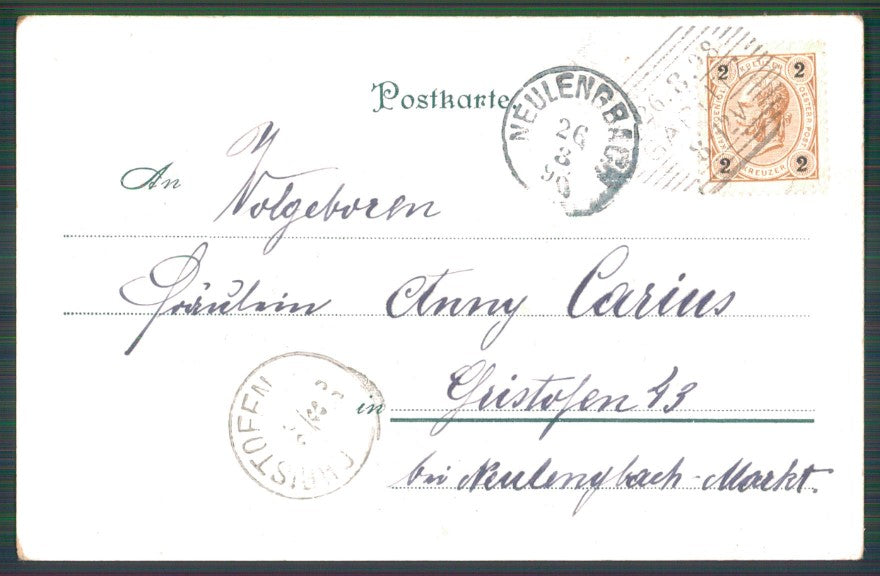 Postkarte
NEULENGBACH
26
8
98
26.8.98
2 2
2 KREUZER 2
An
Wolgeboren
Fräulein Anny Carius
CHRISTOFEN
in Christofen 43
bei Neulengbach-Markt.